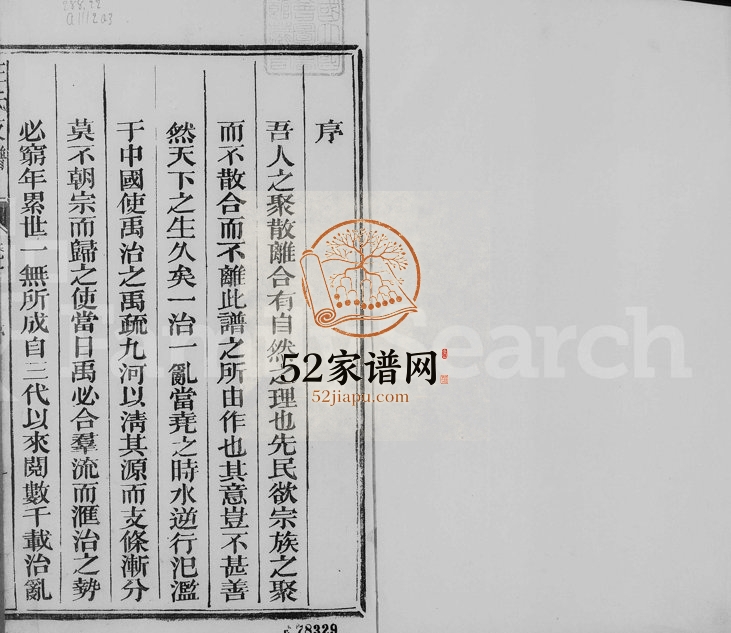 288.22
序
吾人之聚散離合有自然之理也先民欲宗族之聚
而不散合而不離此譜之所由作也其意豈不甚善
然天下之生久矣一治一亂當堯之時水逆行氾濫
于中國使禹治之禹疏九河以清其源而支條漸分
莫不朝宗而歸之使當日禹必合羣流而滙治之勢
必窮年累世一無所成自三代以來閱數千載治亂
Search
52家谱网
52jiapu.com
78329